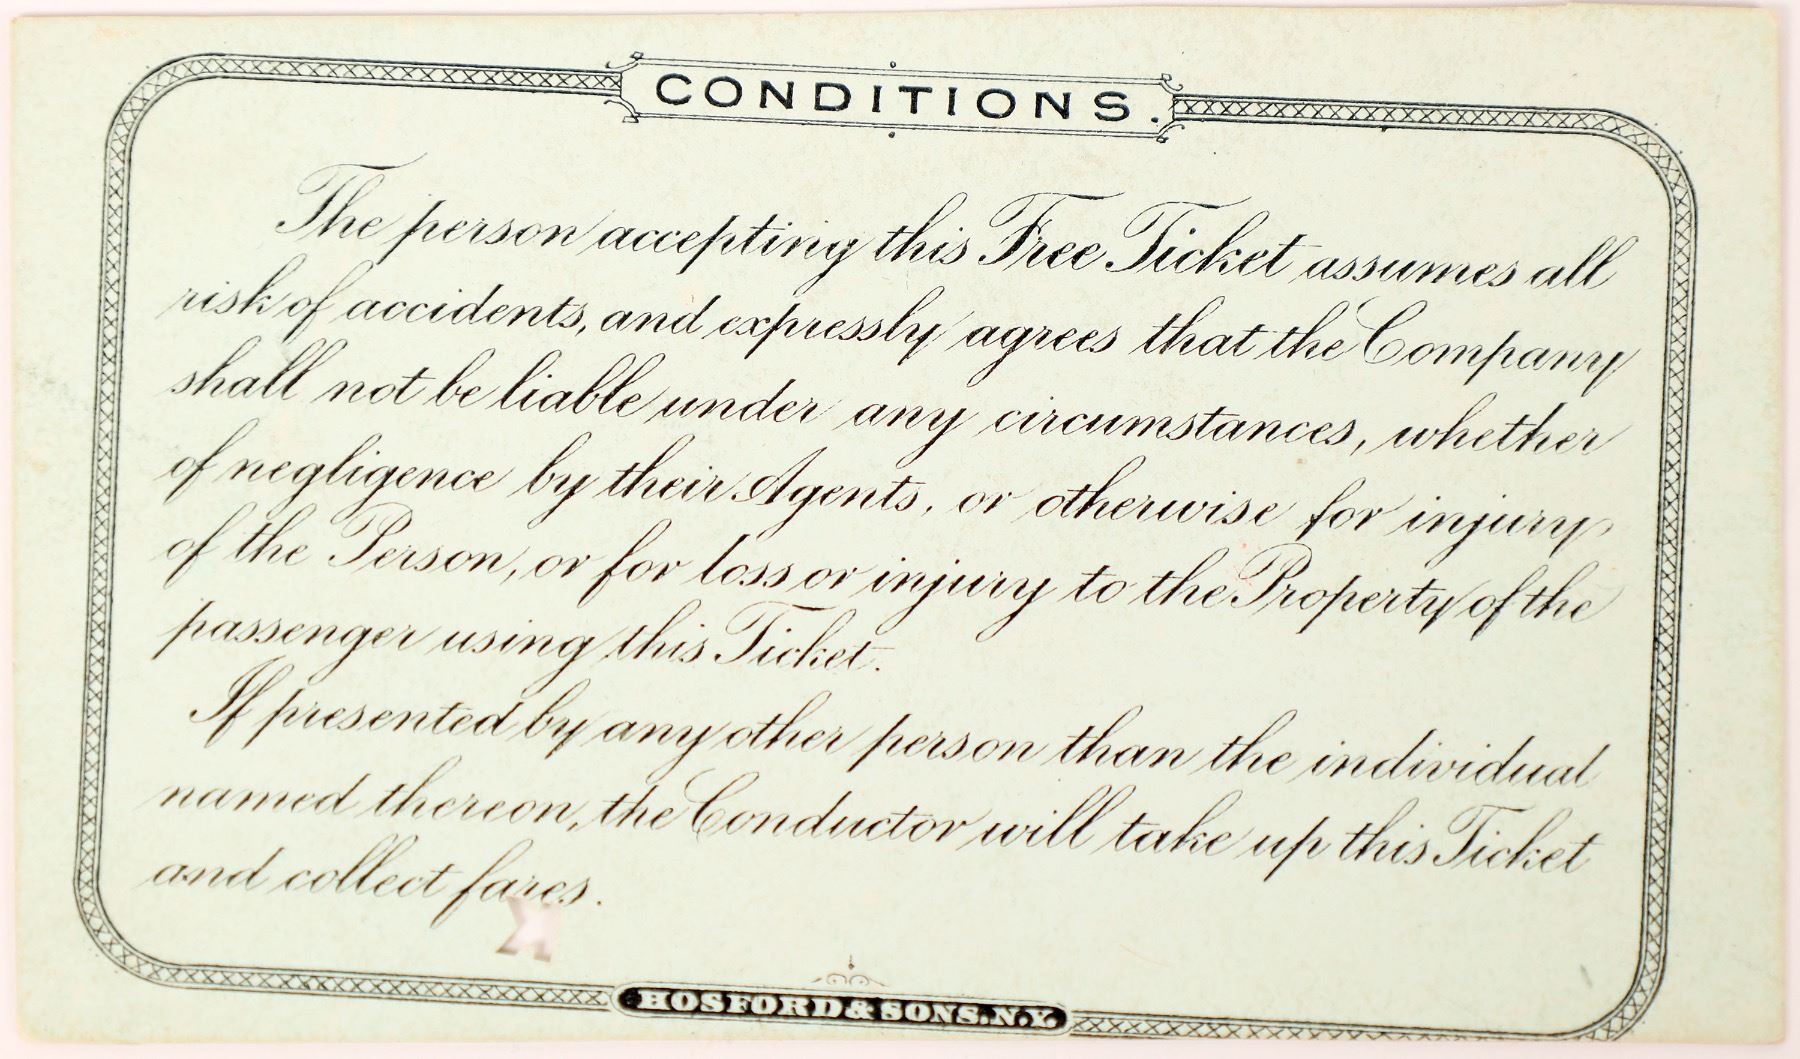 CONDITIONS.
The person accepting this Free Ticket assumes all
risk of accidents, and expressly agrees that the Company
shall not be liable under any circumstances, whether
of negligence by their Agents, or otherwise for injury
of the Person, or for loss or injury to the Property of the
passenger using this Ticket.
If presented by any other person than the individual
named thereon, the Conductor will take up this Ticket
and collect fares.
HOSFORD & SONS. N.Y.